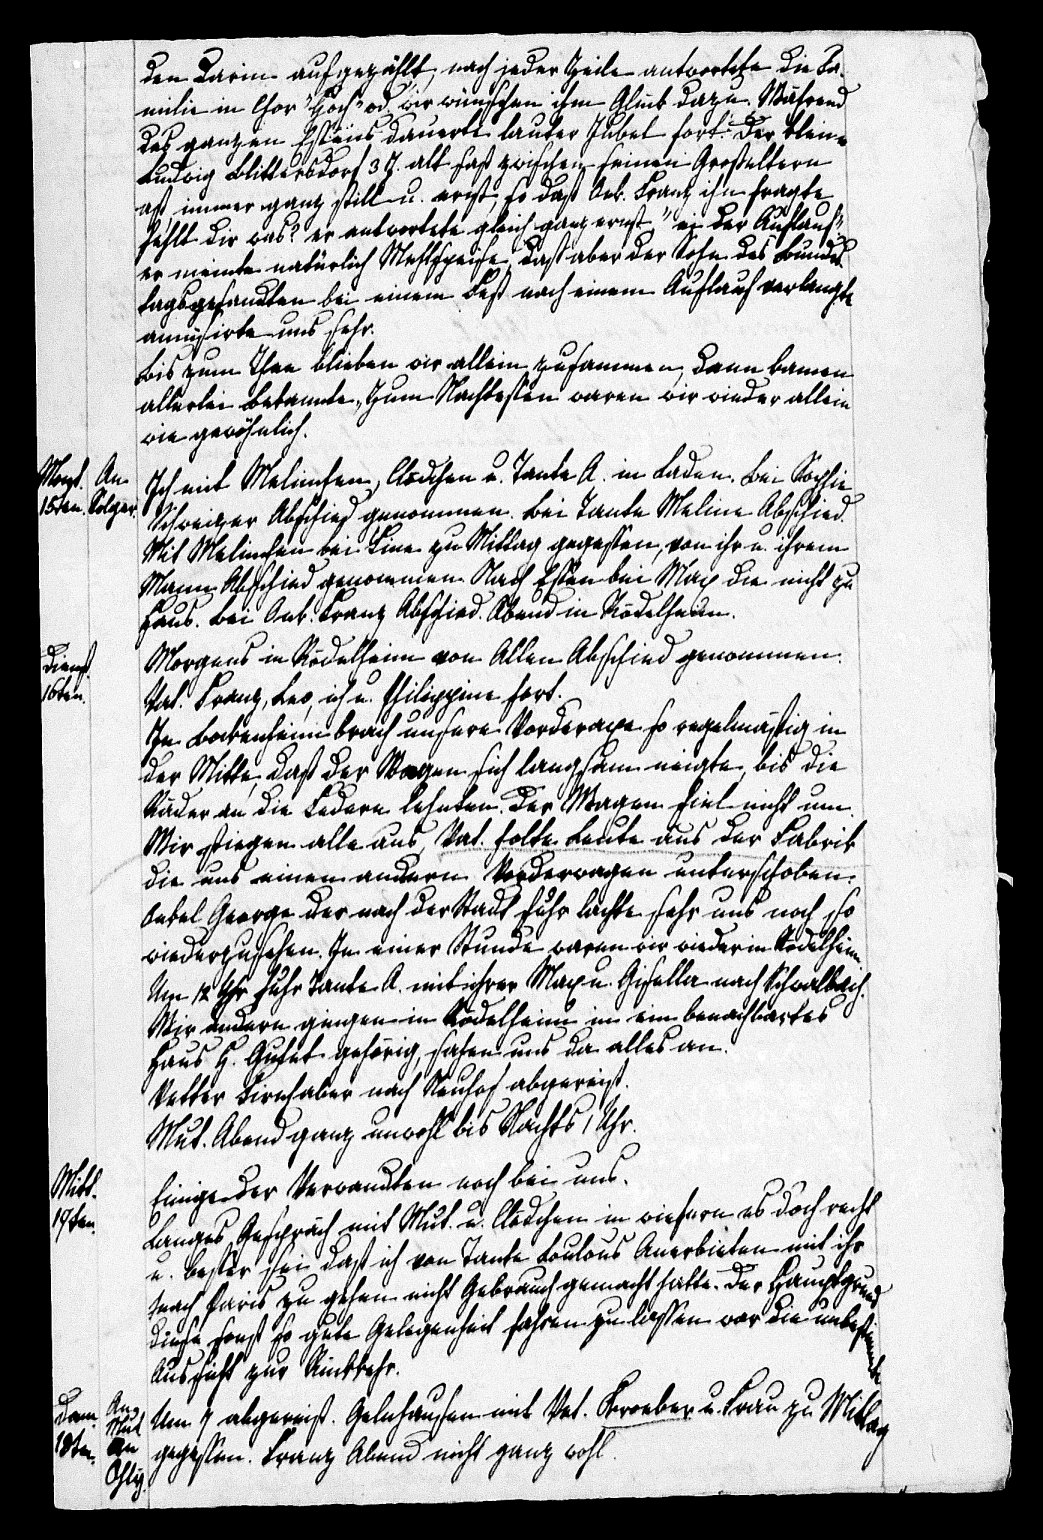 den darin aufgezählt, nach jeder Zeile antwortete die Fa-
milie in Chor "Hoch" od. wir wünschen ihm Glück dazu. Während
des ganzen Essens dauerte lauter Jubel fort. Der kleine
Ludwig Blittersdorf 3 J. alt saß zwischen seinen Großeltern
aß immer ganz still u. ernst, so daß Onk. Franz ihn fragte
fehlt dir was? er antwortete gleich ganz ernst "ei der Auflauf"
er meinte natürlich Mehlspeise, daß aber der Sohn des Bundes
tagsgesandten bei einem Fest nach einem Auflauf verlangte
amüsirte uns sehr.
Bis zum Thee blieben wir allein zusammen, dann kamen
allerlei Bekannte, zum Nachtessen waren wir wieder allein
wie gewöhnlich.
Mont. An
15ten. Solger.
Ich mit Melinchen, Clödchen u. Tante A. in Laden. Bei Sophie
Schweizer Abschied genommen. Bei Tante Meline Abschied.
Mit Melinchen bei Line zu Mittag gegessen, von ihr u. ihrem
Mann Abschied genommen. Nach Essen bei Max die nicht zu
Haus. Bei Onk. Franz Abschied. Abend in Rödelheim.
Dienst.
16ten.
Morgens in Rödelheim von Allen Abschied genommen.
Vat. Franz, Leo, ich u. Philippine fort.
In Bockenheim brach unsere Vorderaxe so regelmäßig in
der Mitte, daß der Wagen sich langsam neigte, bis die
Räder an die Federn lehnten. Der Wagen fiel nicht um.
Wir stiegen alle aus, Vat. holte Leute aus der Fabrik
die uns einen andern Vorderwagen unterschoben.
Onkel George der nach der Stadt fuhr lachte sehr uns noch so
wiederzusehen. In einer Stunde waren wir wieder in Rödelheim.
Um 12 Uhr fuhr Tante A. mit ihrer Max u. Gisella nach Schwalbach.
Wir andern gingen in Rödelheim in ein benachbartes
Haus H. gehörig, sahen uns da alles an.
Vetter Firnhaber nach Neuhof abgereist.
Mut. Abend ganz unwohl bis Nachts 1 Uhr.
Mitt.
17ten.
Einige der Verwandten noch bei uns.
Langes Gespräch mit Mut. u. Clödchen in wiefern es doch recht
u. besser sei daß ich von Tante Loulous Anerbieten mit ihr
nach Paris zu gehen nicht Gebrauch gemacht hatte. Der Hauptgrund
diese sonst so gute Gelegenheit fahren zu lassen war die unbestimmte
Aussicht zur Rückkehr.
Donn. An
18ten. Mut
An
Ohly.
Um 7 abgereist. Gelnhausen mit Vet. Kroeber u. Frau zu Mittag
gegessen. Franz Abend nicht ganz wohl.